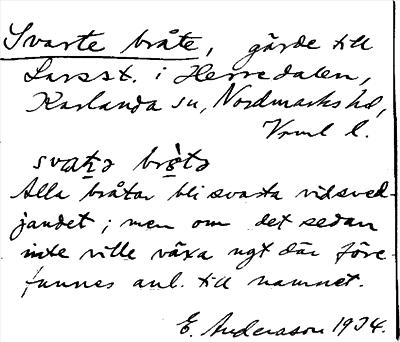 Svarte bråte, gärde till
Larsst. i Herredalen,
Karlanda sn, Nordmarks hd,
Vrml l.
svaʈə brò̀tə
Alla bråtar bli svarta vid sved-
jandet; men om det sedan
inte ville växa ngt där före-
funnes anl. till namnet.
E. Andersson 1934.